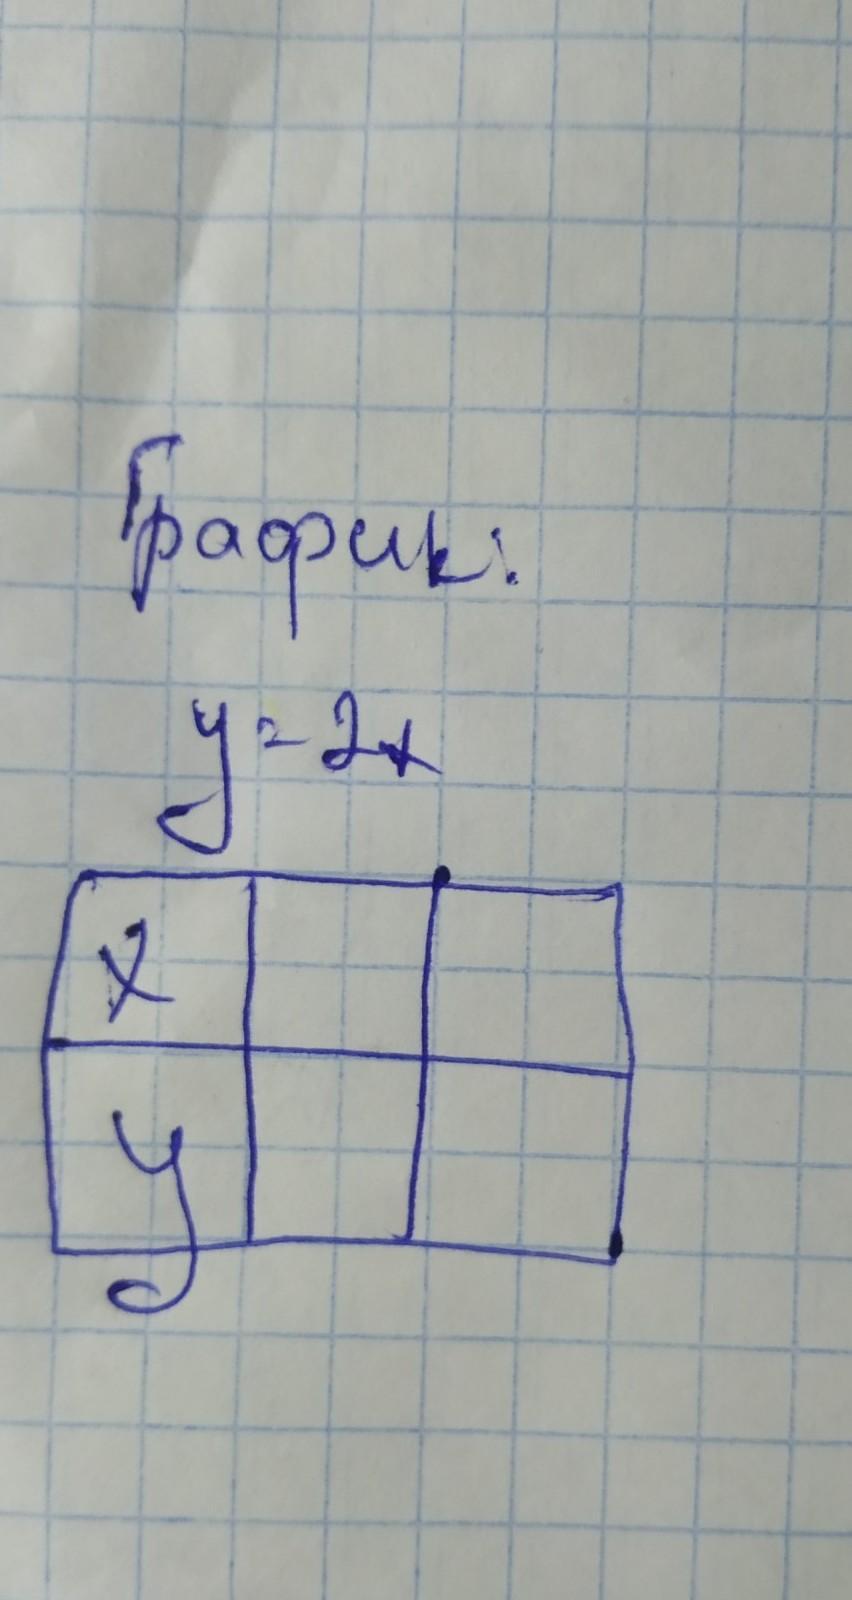 График:
y = 2x
x
y